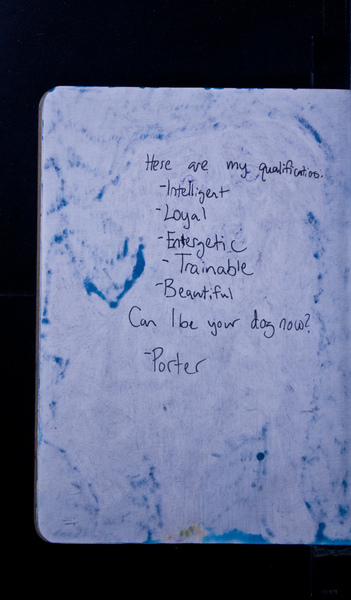 Here are my qualifications.
-Intelligent
-Loyal
-Energetic
-Trainable
-Beautiful
Can I be your dog now?
-Porter